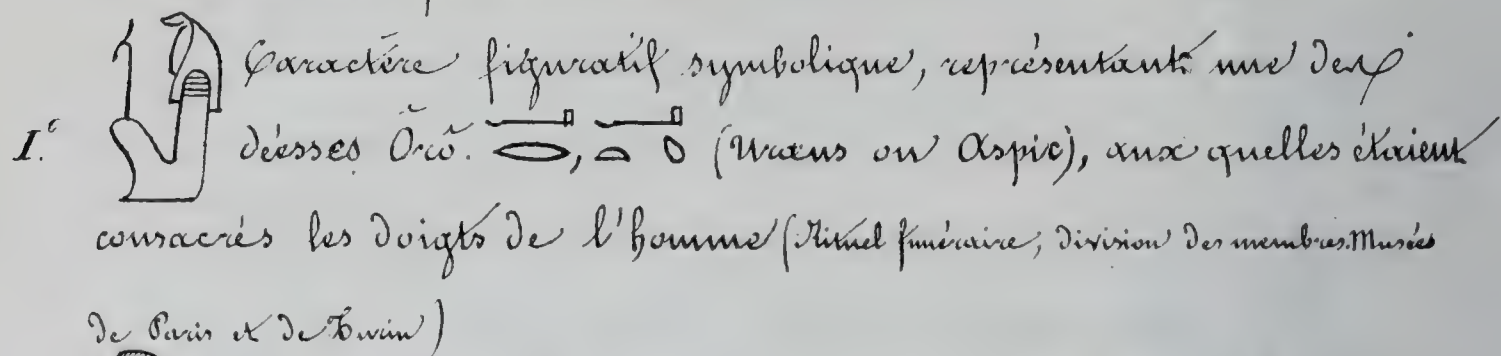 Caractère figuratif symbolique, représentant une des
I.e déesses Ŏrŏ. 𓂝𓂋, 𓂝𓏏𓆇 (Uraeus ou Aspic), aux quelles étaient
consacrés les doigts de l'homme (Rituel funéraire, division des membres. Musées
de Paris et de Turin)